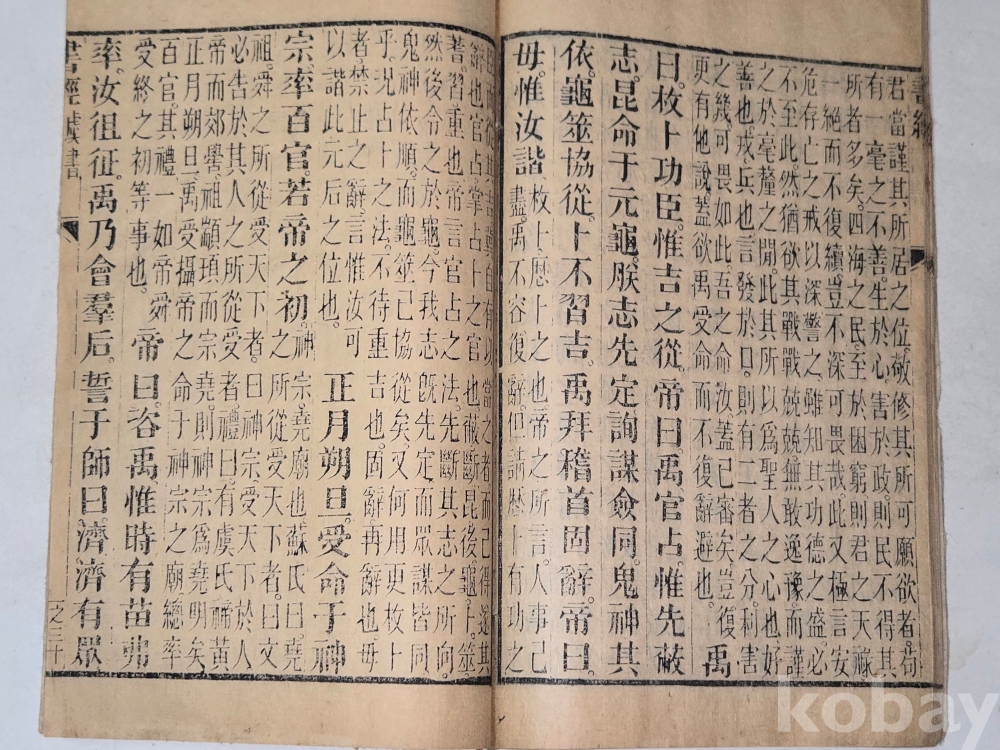 書經
君當謹其所居之位敬修其所可願欲者苟
有一毫之不善生於心害於政則民不得其
所者多矣四海之民至於困窮則君之天祿
一絶而不復續豈不深可畏哉此又極言安
危存亡之戒以深警之雖知其功德之盛必
不至此然猶欲其戰戰兢兢無敢逸豫而謹
之於毫釐之閒此其所以爲聖人之心也好
善也戎兵也言發於口則有二者之分利害
之幾可畏如此吾之命汝蓋已審矣豈復
更有他說蓋欲禹受命而不復辭避也
禹
曰枚卜功臣惟吉之從帝曰禹官占惟先蔽
志昆命于元龜朕志先定詢謀僉同鬼神其
依龜筮協從卜不習吉禹拜稽首固辭帝曰
毋惟汝諧
枚卜歷卜之也帝之所言人事已
盡禹不容復辭但請歷卜有功之
自有以當之者而已得遂其
辭也官占掌占卜之官也蔽斷昆後龜卜筮
蓍習重也帝言官占之法先斷其志之所向
然後令之於龜今我志旣先定而眾謀皆同
鬼神依順而龜筮已協從矣又何用更枚卜
乎况占卜之法不待重吉也固辭再辭也毋
者禁止之辭言惟汝可
以諧此元后之位也
正月朔旦受命于神
宗率百官若帝之初
神宗堯廟也蘇氏曰堯
之所從受天下者曰文
祖舜之所從受天下者曰神宗受天下於人
必告於其人之所從受者禮曰有虞氏禘黃
帝而郊嚳祖顓頊而宗堯則神宗爲堯明矣
正月朔旦禹受攝帝之命于神宗之廟總率
百官其禮一如帝舜
受終之初等事也
帝曰咨禹惟時有苗弗
率汝徂征禹乃會羣后誓于師曰濟濟有眾
書經
kobay